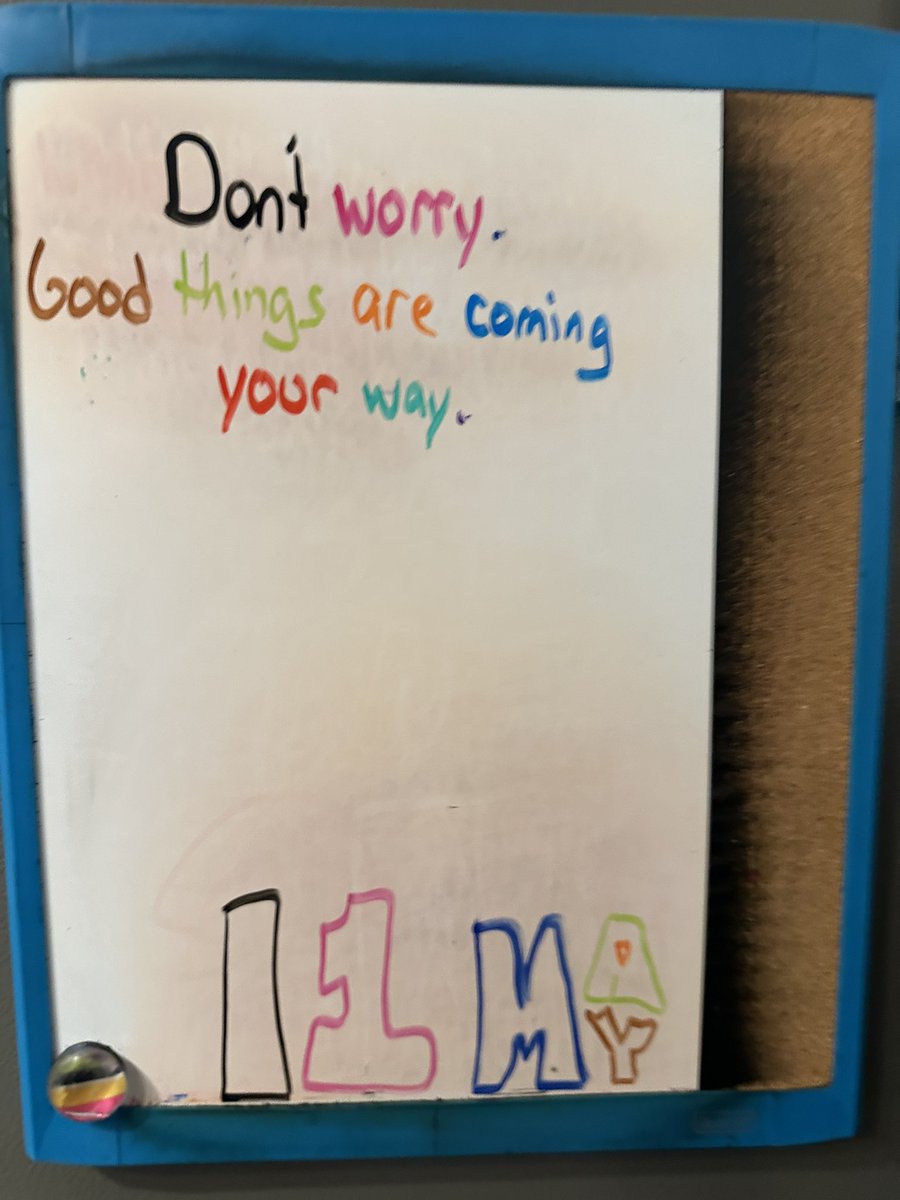 Don't worry.
Good things are coming
your way.
11 MAY